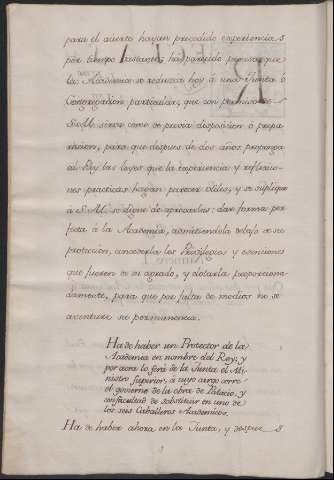 para el acierto hayan precedido experiencias
por tiempo bastante, ha parecido preciso que
la Academia se reduzca hoy á una Junta ó
Congregacion particular, que con permiso de
S.M. sirva como de previa disposicion ó prepa-
racion, para que despues de dos años proponga
al Rey las leyes que la experiencia y reflexio-
nes practicas hagan parecer útiles; y se suplique
à S.M. se digne de aprovarlas: dar forma per-
fecta á la Academia, admitiendola debajo de su
proteccion, concederla los Privilegios y esenciones
que fueren de su agrado, y dotarla proporciona-
damente, para que por falta de medios no se
aventure su permanencia.
Ha de haber un Protector de la
Academia en nombre del Rey, y
por aora lo será de la Junta el Mi-
nistro superior, á cuyo cargo corre
el govierno de la obra de Palacio, y
con facultad de substituir en uno de
los seis Caballeros Academicos.
Ha de haber ahora en la Junta, y despues